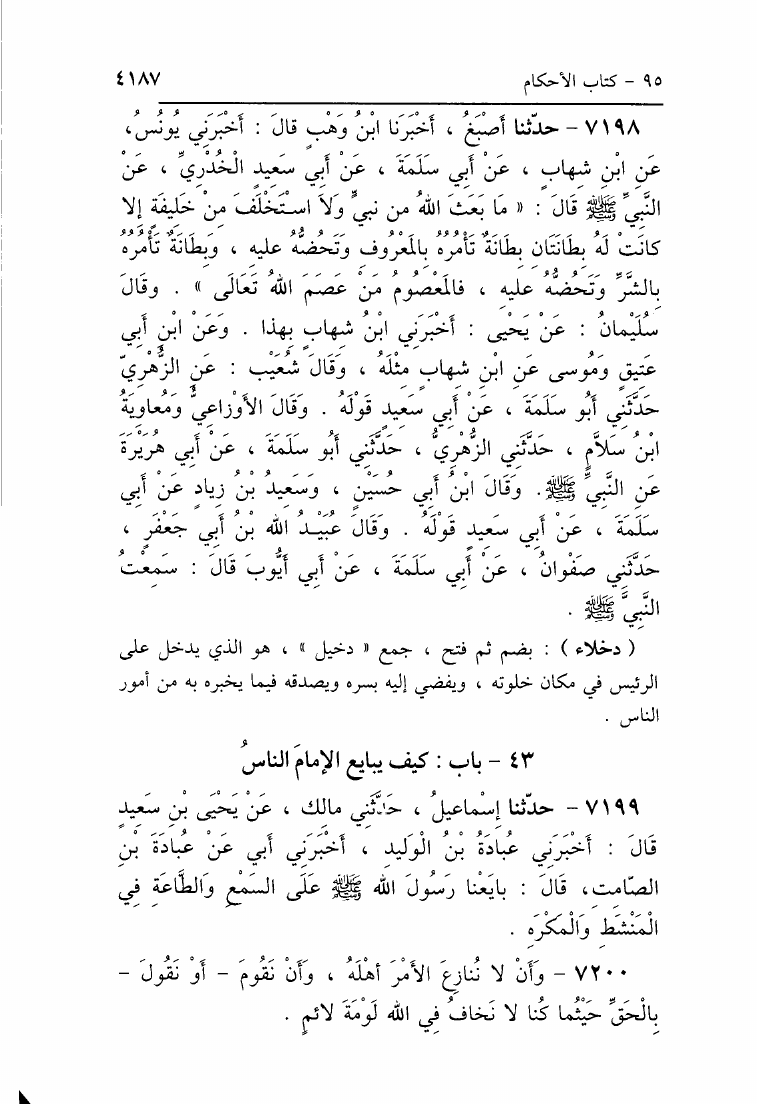 ٩٥ - كتاب الأحكام ٤١٨٧
٧١٩٨ - حدثنا أَصْبَغُ ، أَخْبَرَنَا ابْنُ وَهْبٍ قالَ : أَخْبَرَنِي يُونُسُ،
عَنِ ابْنِ شهابٍ ، عَنْ أَبي سَلَمَةَ ، عَنْ أَبي سَعيدٍ الْخُدْرِيِّ ، عَنْ
النَّبيِّ ﷺ قَالَ : « مَا بَعَثَ اللهُ من نبيٍّ وَلاَ اسْتَخْلَفَ مِنْ خَليفَةٍ إلا
كانَتْ لَهُ بِطَانَتَان بِطَانَةٌ تَأْمُرُهُ بِالمَعْرُوفِ وَتَحُضُّهُ عليه ، وَبِطَانَةٌ تَأْمُرُهُ
بِالشَّرِّ وَتَحُضُّهُ عليه ، فالمَعْصُومُ مَنْ عَصَمَ اللهُ تَعَالَى » . وقَالَ
سُلَيْمانُ : عَنْ يَحْيَى : أَخْبَرَنِي ابْنُ شهابٍ بِهذا . وَعَنْ ابْنِ أَبي
عَتِيقٍ وَمُوسى عَنِ ابْنِ شهابٍ مثْلَهُ ، وَقَالَ شُعَيْب : عَنِ الزُّهْرِيِّ
حَدَّثَنِي أَبُو سَلَمَةَ ، عَنْ أَبِي سَعيدٍ قَوْلَهُ . وَقَالَ الأَوْزاعِيُّ وَمُعاويَةُ
ابْنُ سَلاَّمٍ ، حَدَّثَنِي الزُّهْرِيُّ ، حَدَّثَنِي أَبُو سَلَمَةَ ، عَنْ أَبِي هُرَيْرَةَ
عَنِ النَّبِيِّ ﷺ. وَقَالَ ابْنُ أَبِي حُسَيْنٍ ، وَسَعيدُ بْنُ زِيادٍ عَنْ أَبِي
سَلَمَةَ ، عَنْ أَبِي سَعيدٍ قَوْلَهُ . وَقَالَ عُبَيْدُ الله بْنُ أَبِي جَعْفَرٍ ،
حَدَّثَنِي صَفْوانُ ، عَنْ أَبِي سَلَمَةَ ، عَنْ أَبِي أَيُّوبَ قَالَ : سَمِعْتُ
النَّبِيَّ ﷺ .
( دخلاء ) : بضم ثم فتح ، جمع « دخيل » ، هو الذي يدخل على
الرئيس في مكان خلوته ، ويفضي إليه بسره ويصدقه فيما يخبره به من أمور
الناس .
٤٣ - باب : كيف يبايع الإمامَ الناسُ
٧١٩٩ - حدّثنا إِسْماعيلُ ، حَدَّثَنِي مالك ، عَنْ يَحْيَى بْنِ سَعِيدٍ
قَالَ : أَخْبَرَنِي عُبَادَةُ بْنُ الْوَليد ، أَخْبَرَنِي أَبي عَنْ عُبادَةَ بْنِ
الصّامتِ، قَالَ : بايَعْنا رَسُولَ الله ﷺ عَلَى السَّمْعِ وَالطَّاعَةِ فِي
الْمَنْشَطِ وَالْمَكْرَهِ .
٧٢٠٠ - وَأَنْ لا نُنازِعَ الأَمْرَ أَهْلَهُ ، وَأَنْ نَقُومَ - أَوْ نَقُولَ -
بِالْحَقِّ حَيْثُما كُنا لا نَخافُ فِي الله لَوْمَةَ لائمٍ .